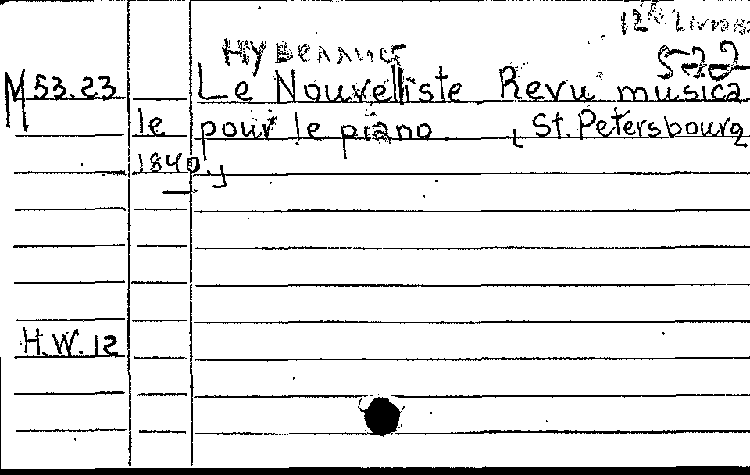 12e Livrais
НУВЕЛЛИСТ
522
M 53.23 Le Nouvelliste. Revu musica
le pour le piano , St. Petersbourg
1840,
H.W. 12